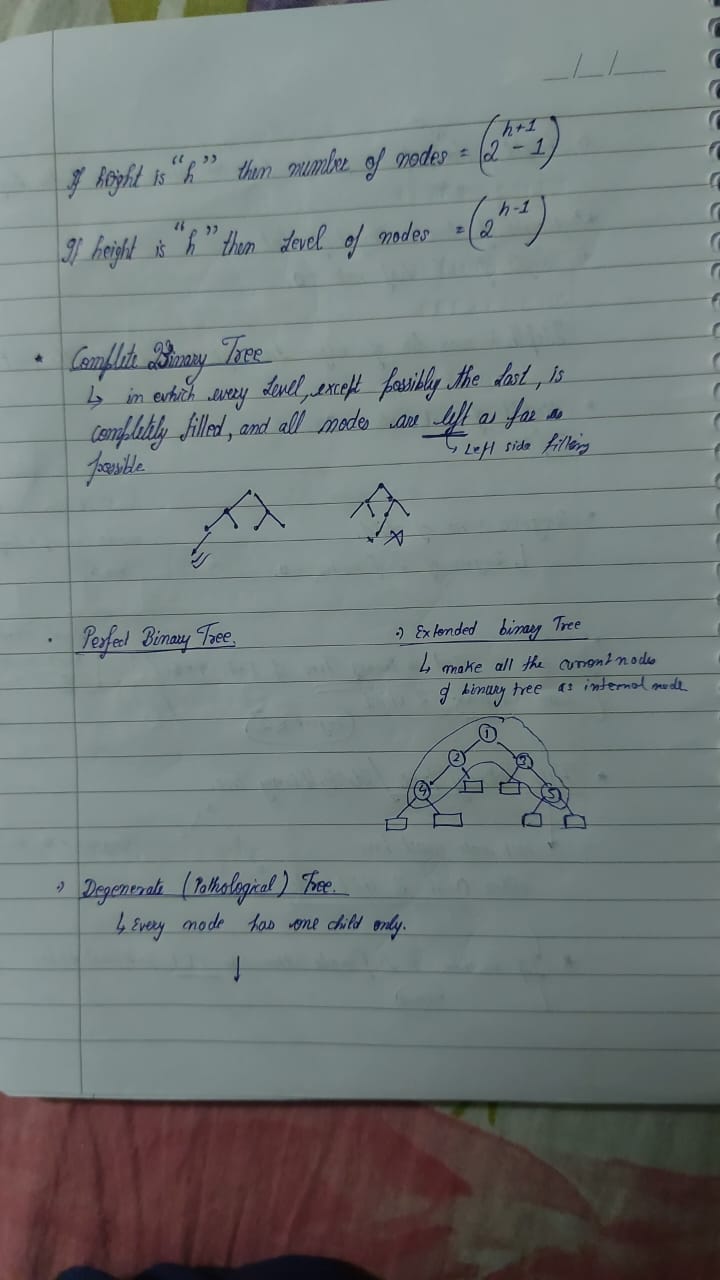 __/__/____
If height is "h" then number of nodes = (2^(h+1) - 1)
If height is "h" then Level of nodes = (2^(h-1))
* Complete Binary Tree
↳ in which every Level, except possibly the last, is
completely filled, and all nodes are left as far as
↳ Left side filling
possible
• Perfect Binary Tree.
:) Extended binary Tree
↳ make all the current nodes
of binary tree as internal node
1
2 3
4 5
:) Degenerate (Pathological) Tree.
↳ Every node has one child only.
↓